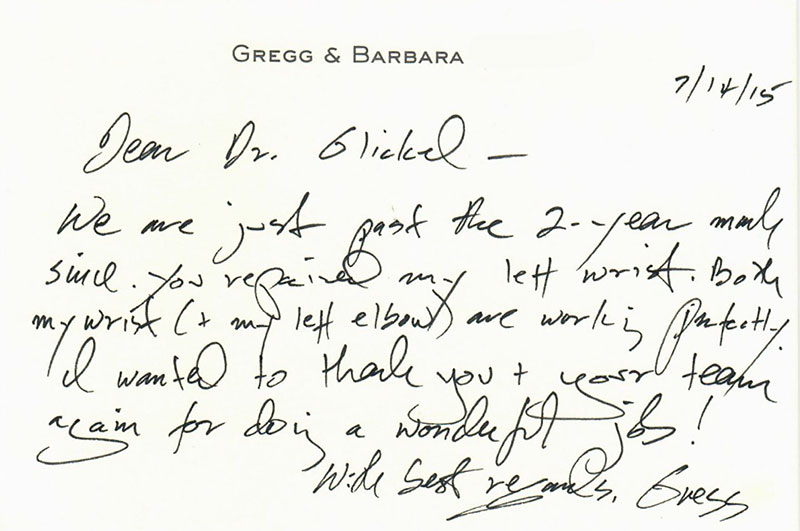 GREGG & BARBARA
7/14/15
Dear Dr. Glickel —
We are just past the 2-year mark
since you repaired my left wrist. Both
my wrist (+ my left elbow) are working perfectly.
I wanted to thank you + your team
again for doing a wonderful job!
With best regards, Gregg